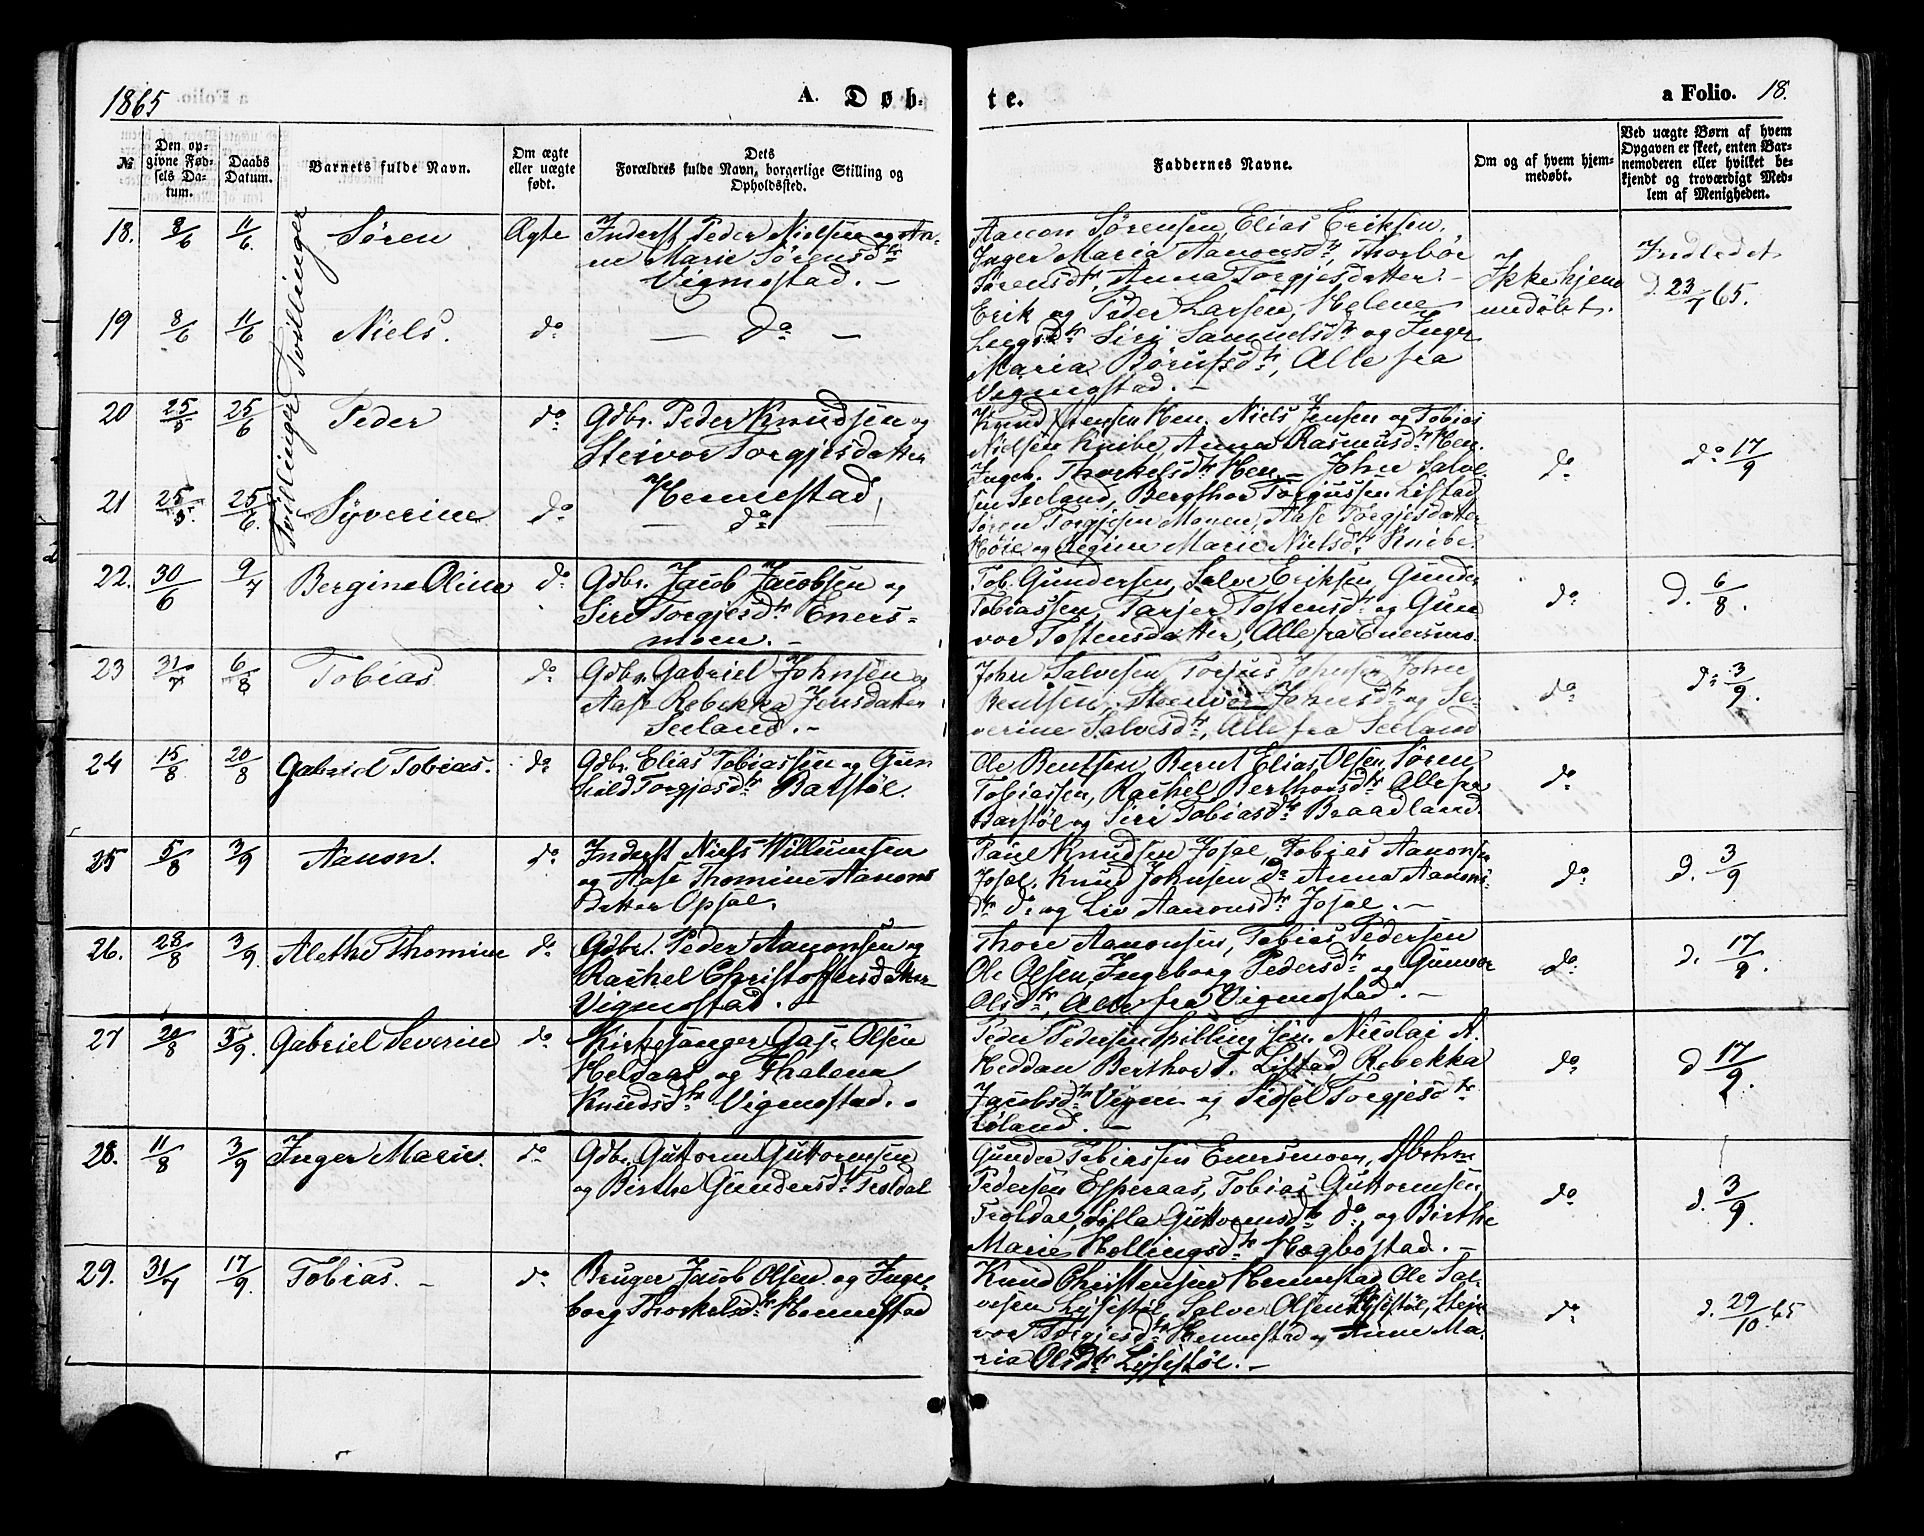 1865
A. Døb-
te.
a Folio. 18.
№
Den opgivne Fødsels Datum.
Daabs Datum.
Barnets fulde Navn.
Om ægte eller uægte født.
Dets Forældres fulde Navn, borgerlige Stilling og Opholdssted.
Faddernes Navne.
Om og af hvem hjemmedøbt.
Ved uægte Børn af hvem Opgaven er skeet, enten Barnemoderen eller hvilket bekjendt og troværdigt Medlem af Menigheden.
Tvillinger Tvillinger
18. 8/6 11/6 Søren Ægte Inderst Peder Nielsen og An-
ne Marie Sørensdtr
Vigmostad. -
Aanon Sørensen, Elias Eriksen,
Inger Maria Aanonsdtr, Thorbør
Sørensdtr, Anna Torgjesdatter. -
Ikke hjem
medøbt.
Indledet
d. 23/7 65.
19 8/6 11/6 Niels. do - do -
Erik og Peder Larsen, Helene
Siri Samuelsdtr og Inger
Maria Børufsdtr, Alle fra
Vigmostad. -
20 25/5 25/6 Peder do Gdbr. Peder Knudsen og
Steivor Torgjesdatter
Hennestad
Knud Jensen Hen. Niels Jensen og Tobias
Nielsen Knibe, Anna Rasmusdtr Hen.
Ingeb. Thorkelsdtr Hen - John Salve-
do
do 17/9
21 25/5. 25/6. Syverine do - do -
sen Seeland, Bergthor Torgussen Listad
Søren Torgjesen Monen, Aase Torgjesdatter
Høie og Regine Marie Nielsdtr Knibe.
22. 30/6 9/7 Bergine Oline do Gdbr. Jacob Jacobsen og
Siri Torgjesdtr Eners-
moen. -
Tob. Gundersen, Salve Eriksen, Gunder
Tobiassen, Tarjer Tostensdtr og Gun
vor Tostensdatter, Alle fra Enersmo.
do
d. 6/8.
23 31/7 6/8 Tobias do Gdbr. Gabriel Johnsen og
Aase Rebekka Jonsdatter
Seeland. -
John Salvesen, Torjus Johnsen, John
Bentsen, Steenvor Johnsdtr og Se-
verine Salvesdtr, Alle fra Seeland
do
do 3/9.
24 15/8 20/8 Gabriel Tobias. do Gdbr. Elias Tobiassen og Gun
hild Torgjesdtr Barstøl.
Ole Bentsen Bernt Elias Olsen, Søren
Tobiassen, Rachel Berthorsdtr Alle fra
Barstøl og Siri Tobiasdtr Braadland.
do
25 5/8 3/9 Aanon. do Inderst Niels Willumsen
og Aase Thomine Aanons
Datter Opsal.
Paul Knudsen Josal, Tobias Aanonsen
Josal. Knud Johnsen do Anna Aanons-
dtr do og Liv Aanonsdtr Josal. -
do
d. 3/9
26. 28/8 3/9. Alethe Thomine do Gdbr. Peder Aanonsen og
Rachel Christoffersdatter
Vigmostad. -
Thore Aanonsen, Tobias Pedersen
Ole Olsen, Ingeborg Pedersdtr og Gunvor
Olsdtr, Alle fra Vigmostad. -
do
d. 17/9.
27 20/8 3/9. Gabriel Severin do Kirkesanger Aase Olsen
Heldaas og Thalena
Knudsdtr Vigmostad. -
Peder Pedersen Spilling sen. Nicolai A.
Heddan Berthor T. Listad, Rebekka
Jacobsdtr Vigen og Sidsel Torgjesdtr
Loland. -
do
d 17/9.
28. 11/8 3/9 Inger Marie. do Gdbr. Guttorm Guttormsen
og Birthe Gundersdtr Troldal
Gunder Tobiassen Enersmoen, Abrahm
Pedersen Esperaas, Tobias Guttormsen
Troldal, Guttormsdtr do og Birthe
Marie Hollingsdtr Hægbostad. -
do
d. 3/9.
29. 31/7 17/9 Tobias. - do Bruger Jacob Olsen og Inge-
borg Thorkelsdtr Hennestad
Knud Christensen Hennestad, Ole Sal-
vesen Lysestøl, Salve Olsen Lysestøl, Stei-
vor Torgjesdtr Hennestad og Anne Ma-
ria Olsdtr Lysestøl. -
do
d. 29/10 65